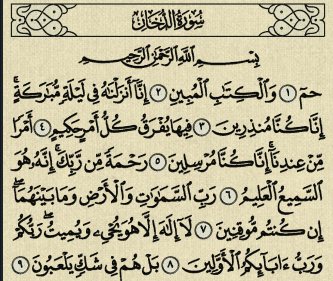 سُورَةُ الدُّخَانِ
بِسْمِ اللَّهِ الرَّحْمَٰنِ الرَّحِيمِ
حمٓ ١ وَالْكِتَابِ الْمُبِينِ ٢ إِنَّا أَنزَلْنَاهُ فِي لَيْلَةٍ مُّبَارَكَةٍ ۚ
إِنَّا كُنَّا مُنذِرِينَ ٣ فِيهَا يُفْرَقُ كُلُّ أَمْرٍ حَكِيمٍ ٤ أَمْرًا
مِّنْ عِندِنَا ۚ إِنَّا كُنَّا مُرْسِلِينَ ٥ رَحْمَةً مِّن رَّبِّكَ ۚ إِنَّهُ هُوَ
السَّمِيعُ الْعَلِيمُ ٦ رَبِّ السَّمَاوَاتِ وَالْأَرْضِ وَمَا بَيْنَهُمَا ۖ
إِن كُنتُم مُّوقِنِينَ ٧ لَا إِلَٰهَ إِلَّا هُوَ يُحْيِي وَيُمِيتُ ۖ رَبُّكُمْ
وَرَبُّ ءَابَائِكُمُ الْأَوَّلِينَ ٨ بَلْ هُمْ فِي شَكٍّ يَلْعَبُونَ ٩